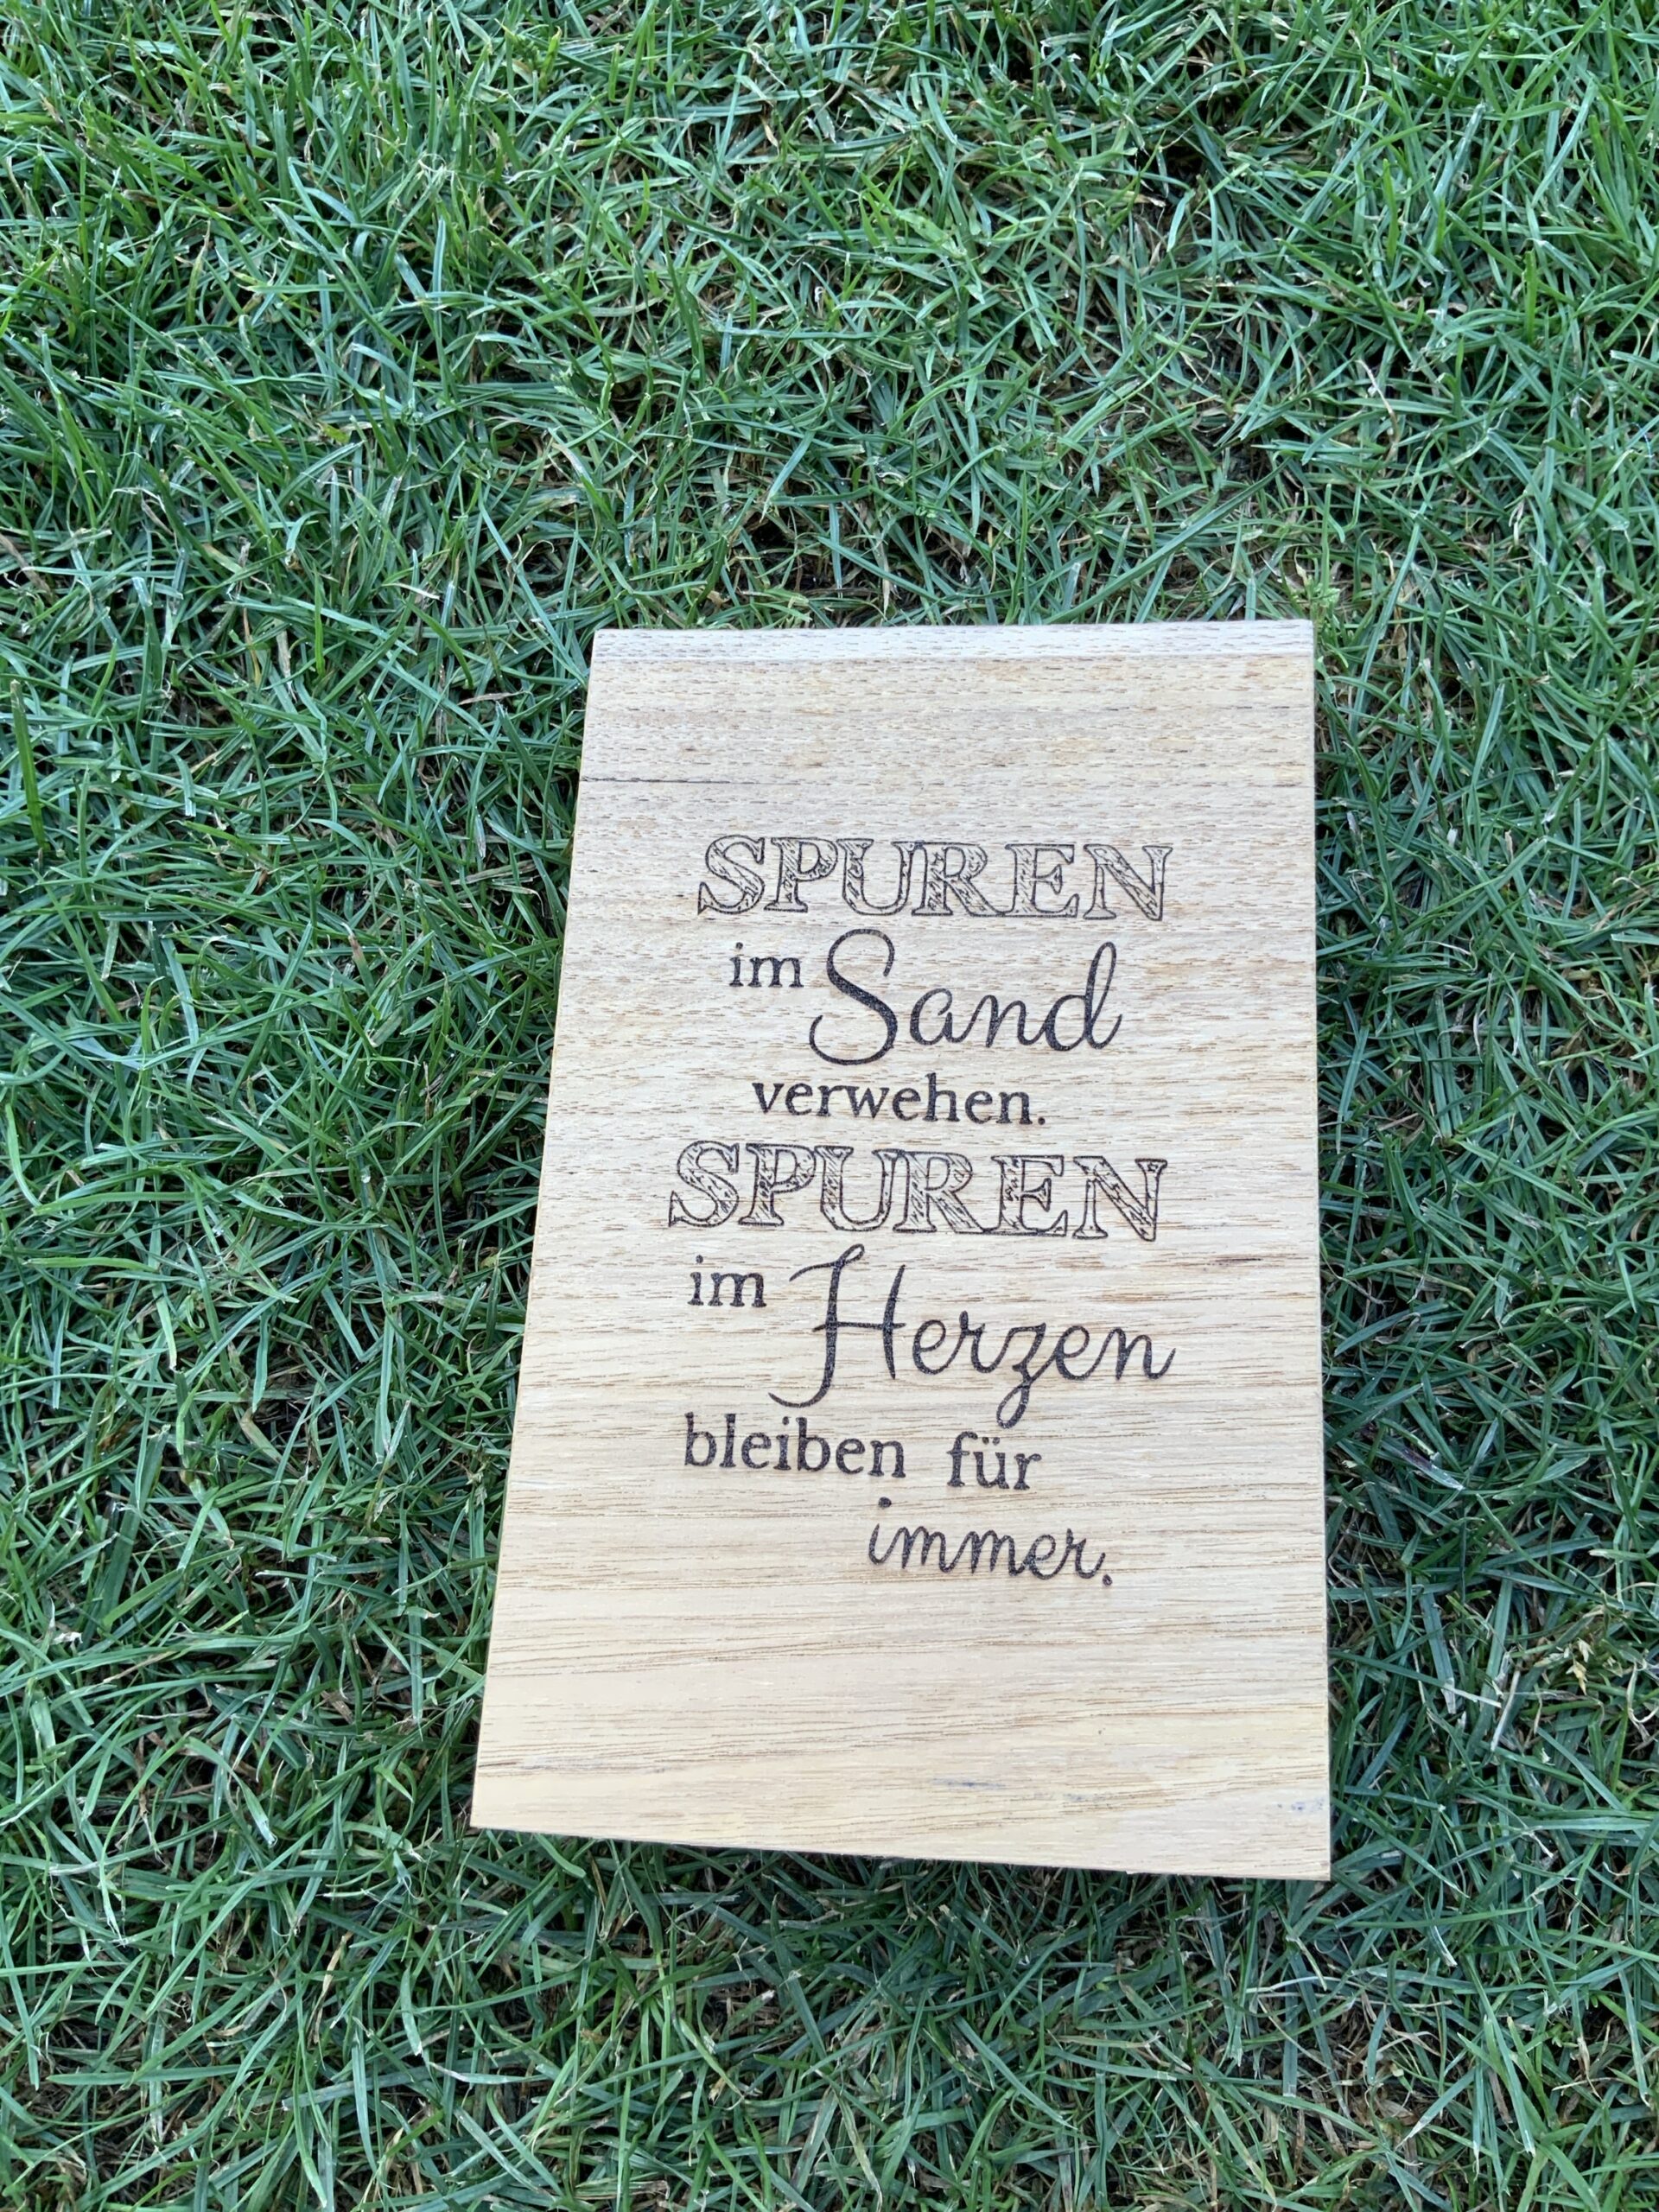 SPUREN
im Sand
verwehen.
SPUREN
im Herzen
bleiben für
immer.